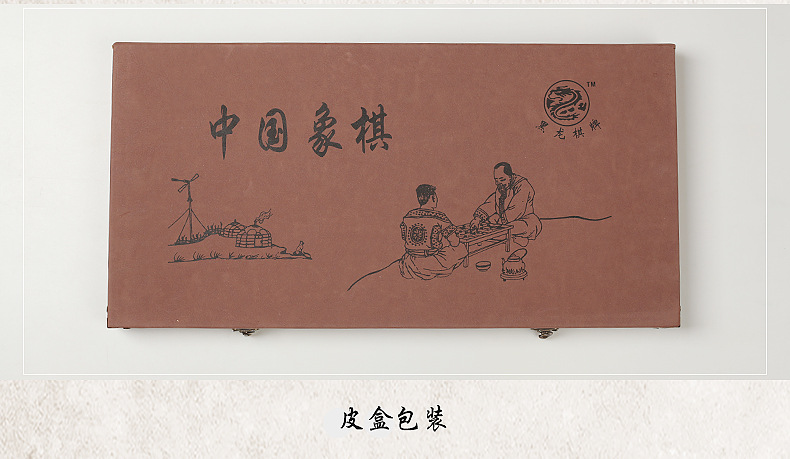 中国象棋
TM
黑龙棋牌
皮盒包装